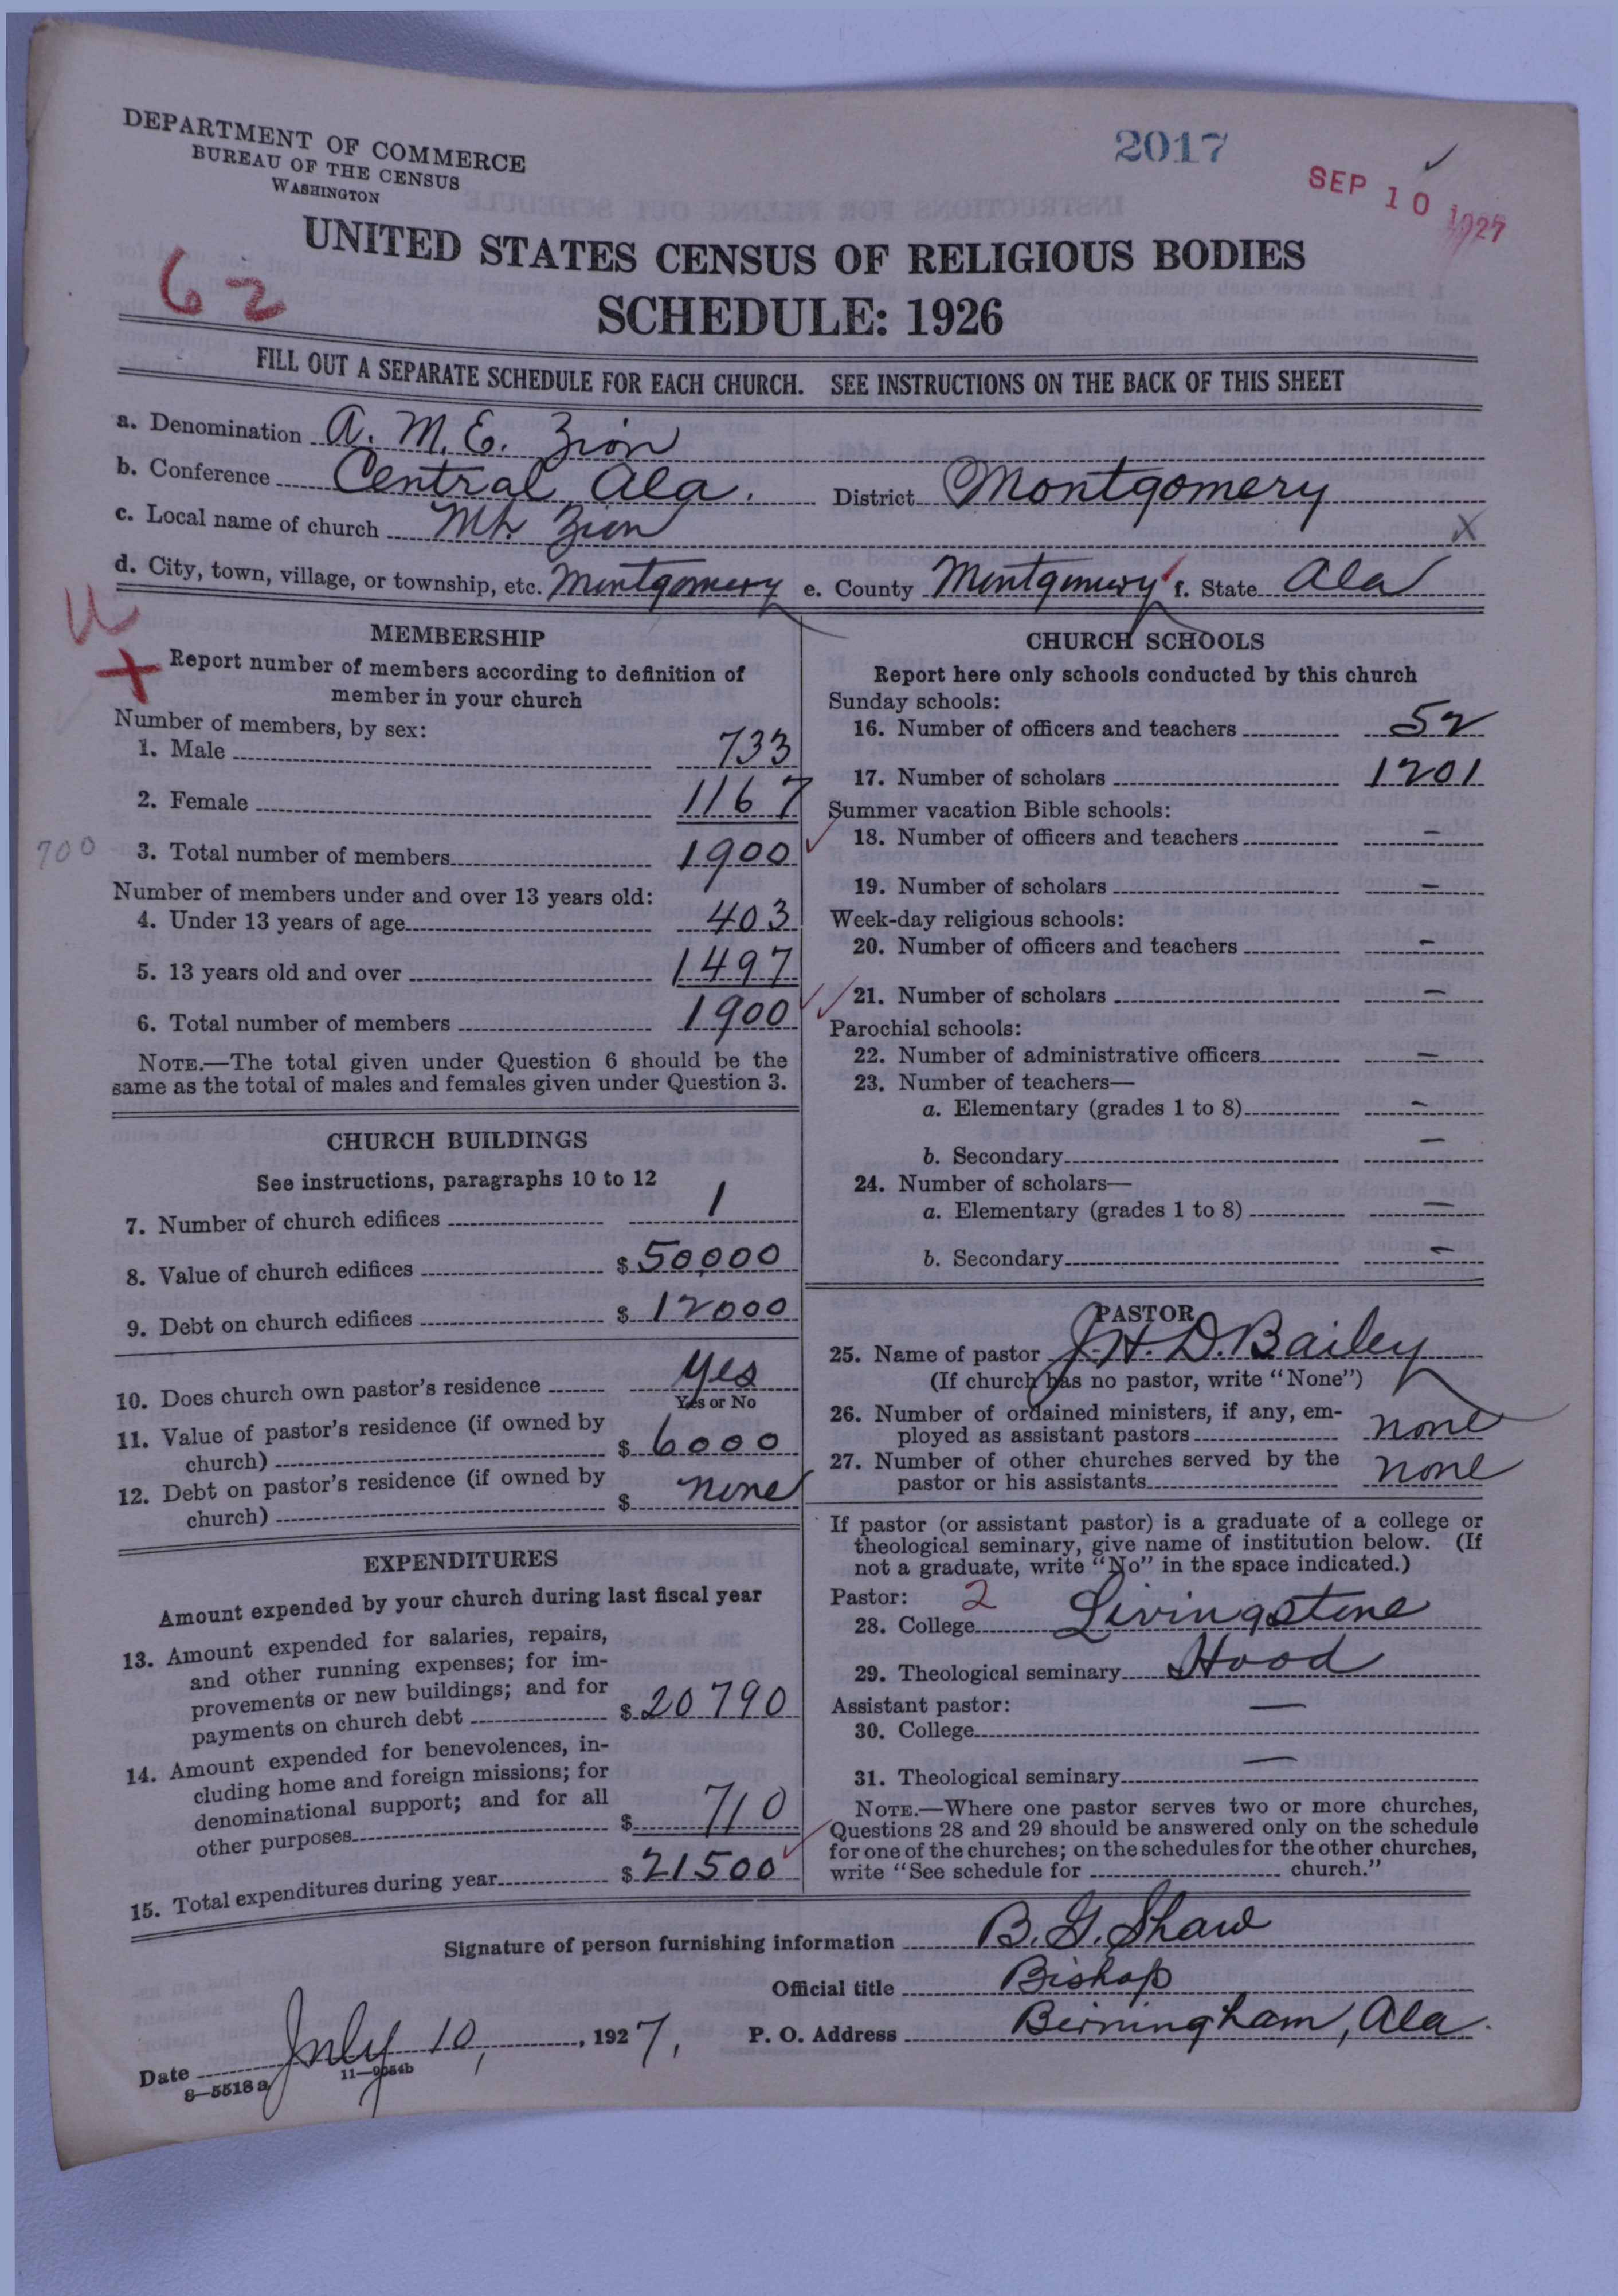 DEPARTMENT OF COMMERCE
BUREAU OF THE CENSUS
WASHINGTON
2017
SEP 10 1927
62
UNITED STATES CENSUS OF RELIGIOUS BODIES
SCHEDULE: 1926
FILL OUT A SEPARATE SCHEDULE FOR EACH CHURCH. SEE INSTRUCTIONS ON THE BACK OF THIS SHEET
a. Denomination A. M. E. Zion
b. Conference Central Ala. District Montgomery
c. Local name of church Mt. Zion X
d. City, town, village, or township, etc. Montgomery e. County Montgomery f. State Ala
MEMBERSHIP
Report number of members according to definition of
member in your church
Number of members, by sex:
1. Male 733
2. Female 1167
700
3. Total number of members 1900
Number of members under and over 13 years old:
4. Under 13 years of age 403
5. 13 years old and over 1497
6. Total number of members 1900
NOTE.—The total given under Question 6 should be the
same as the total of males and females given under Question 3.
CHURCH BUILDINGS
See instructions, paragraphs 10 to 12
7. Number of church edifices 1
8. Value of church edifices $ 50,000
9. Debt on church edifices $ 12000
10. Does church own pastor's residence yes
Yes or No
11. Value of pastor's residence (if owned by
church) $ 6000
12. Debt on pastor's residence (if owned by
church) $ none
EXPENDITURES
Amount expended by your church during last fiscal year
13. Amount expended for salaries, repairs,
and other running expenses; for im-
provements or new buildings; and for
payments on church debt $ 20790
14. Amount expended for benevolences, in-
cluding home and foreign missions; for
denominational support; and for all
other purposes $ 710
15. Total expenditures during year $ 21500
CHURCH SCHOOLS
Report here only schools conducted by this church
Sunday schools:
16. Number of officers and teachers 52
17. Number of scholars 1201
Summer vacation Bible schools:
18. Number of officers and teachers —
19. Number of scholars —
Week-day religious schools:
20. Number of officers and teachers —
21. Number of scholars —
Parochial schools:
22. Number of administrative officers —
23. Number of teachers—
a. Elementary (grades 1 to 8) —
b. Secondary —
24. Number of scholars—
a. Elementary (grades 1 to 8) —
b. Secondary —
PASTOR
25. Name of pastor J. H. D. Bailey
(If church has no pastor, write "None")
26. Number of ordained ministers, if any, em-
ployed as assistant pastors none
27. Number of other churches served by the
pastor or his assistants none
If pastor (or assistant pastor) is a graduate of a college or
theological seminary, give name of institution below. (If
not a graduate, write "No" in the space indicated.)
Pastor: 2
28. College Livingstone
29. Theological seminary Hood
Assistant pastor:
30. College —
31. Theological seminary —
NOTE.—Where one pastor serves two or more churches,
Questions 28 and 29 should be answered only on the schedule
for one of the churches; on the schedules for the other churches,
write "See schedule for church."
Signature of person furnishing information B. G. Shaw
Official title Bishop
Date July 10, 1927, P. O. Address Birmingham, Ala.
8—5518a 11—9054b